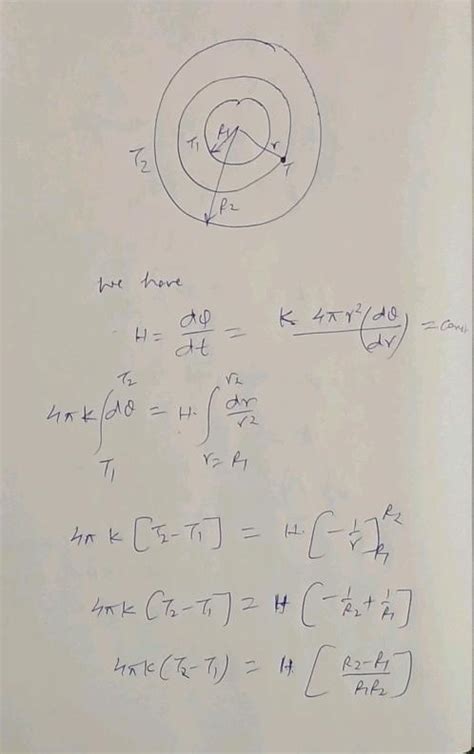 T₂ T₁ R₁ r T
R₂
we have
H = dφ/dt = K 4πr² (dθ/dr) = cons
4πk ∫_{T₁}^{T₂} dθ = H. ∫_{r=R₁}^{r₂} dr/r²
4πk [T₂-T₁] = H. [-1/r]_{R₁}^{R₂}
4πk (T₂-T₁) = H [-1/R₂ + 1/R₁]
4πk (T₂-T₁) = H [(R₂-R₁)/(R₁R₂)]